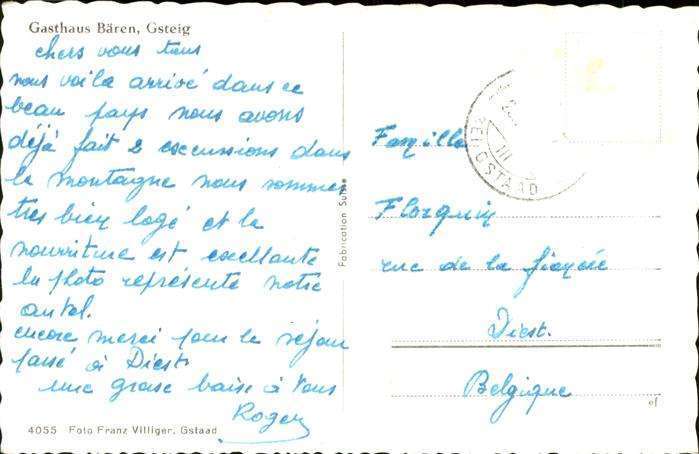 Gasthaus Bären, Gsteig
chers vous tous
nous voila arrivé dans ce
beau pays nous avons
déjà fait 2 excussions dans
la montagne nous sommes
tres bien logé et la
nourriture est exellante
la photo représente notre
autel.
encore merci pour le séjour
passé à Diest
une grose baise à vous
Roger
4055 Foto Franz Villiger, Gstaad
Fabrication Suisse
GSTAAD
III
Famille
Florquin
rue de la
Diest.
Belgique